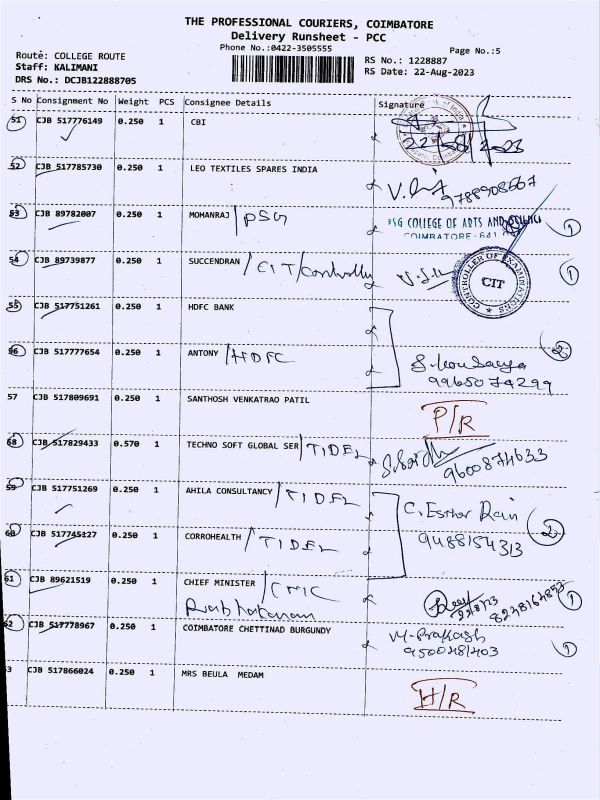 THE PROFESSIONAL COURIERS, COIMBATORE
Delivery Runsheet - PCC
Phone No.:0422-3505555
Page No.:5
Route: COLLEGE ROUTE
Staff: KALIMANI
DRS No.: DCJB122888705
RS No.: 1228887
RS Date: 22-Aug-2023
S No Consignment No Weight PCS Consignee Details Signature
51 CJB 517776149 0.250 1 CBI
22/08/2023
52 CJB 517785730 0.250 1 LEO TEXTILES SPARES INDIA
9788908667
53 CJB 89782007 0.250 1 MOHANRAJ / PSG
PSG COLLEGE OF ARTS AND SCIENCE
COIMBATORE - 641 1
54 CJB 89739877 0.250 1 SUCCENDRAN / CIT/Controlly
CONTROLLER OF EXAMINATIONS CIT 1
55 CJB 517751261 0.250 1 HDFC BANK
56 CJB 517777654 0.250 1 ANTONY / HDFC
2
9965074299
57 CJB 517809691 0.250 1 SANTHOSH VENKATRAO PATIL
P/R
58 CJB 517829433 0.570 1 TECHNO SOFT GLOBAL SER / TIDEL
9600874633
59 CJB 517751269 0.250 1 AHILA CONSULTANCY / TIDEL
C. Esther Rain
60 CJB 517745127 0.250 1 CORROHEALTH / TIDEL
9488154313 2
61 CJB 89621519 0.250 1 CHIEF MINISTER / CMC
Prabhakaran
8248164853 1
62 CJB 517778967 0.250 1 COIMBATORE CHETTINAD BURGUNDY
M. Prakash
9500481403 1
3 CJB 517866024 0.250 1 MRS BEULA MEDAM
H/R